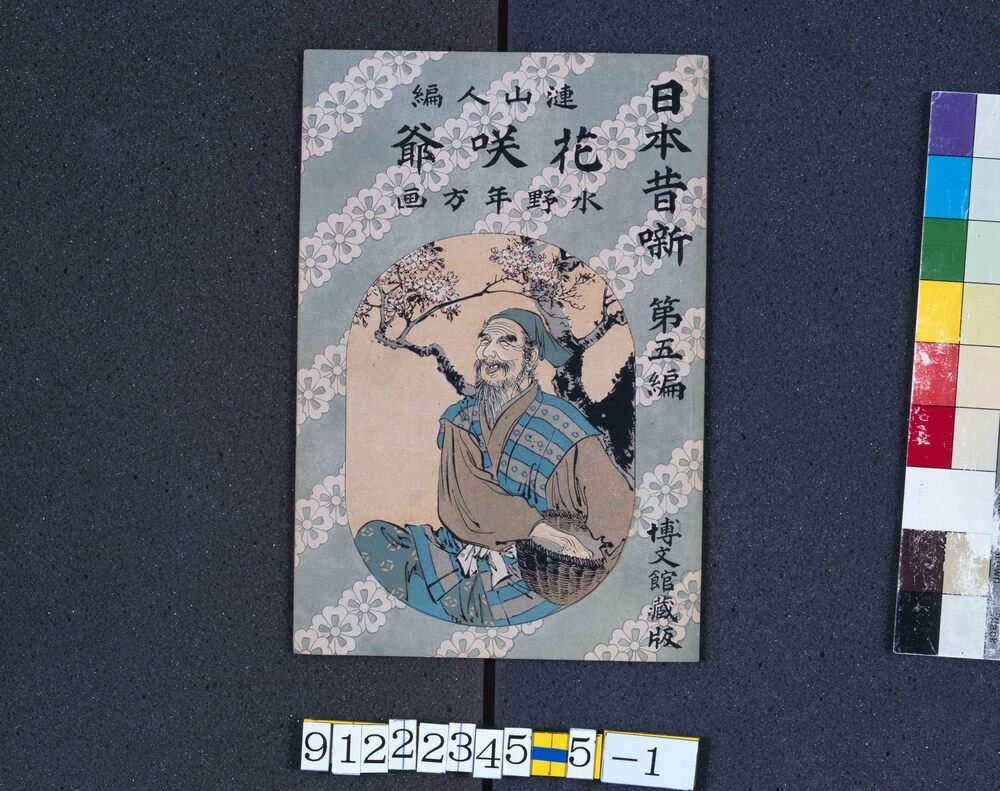 日本昔噺 第五編
漣山人編
花咲爺
水野年方画
博文館蔵版
9122245=5-1